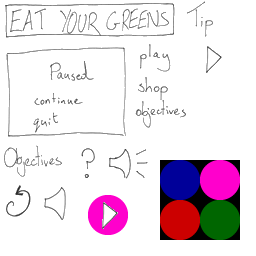 EAT YOUR GREENS
Tip
Paused
continue
quit
play
shop
objectives
Objectives
?